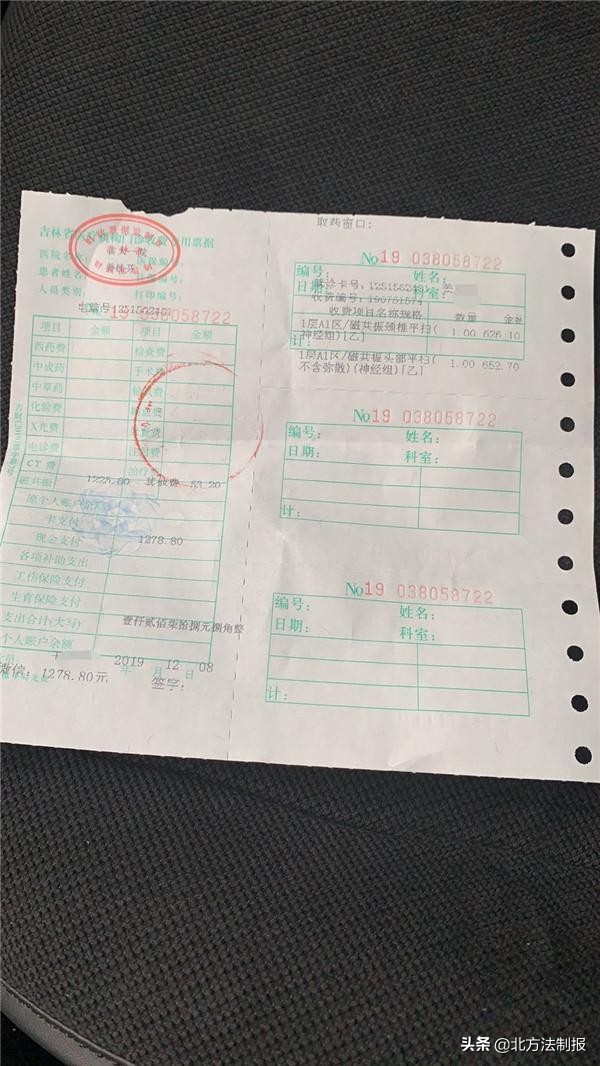 取药窗口：
吉林省医疗机构门诊收费专用票据
医院名
患者姓名：
人员类别：
医保编
打印编号：
电脑号1251562461
19 038058722
项目 金额 项目 金额
西药费 检查费
中成药 手术
中草药
化验费
X光费
电诊费
CT 费 治疗
磁共振 1225.60 其他费 53.20
原个人账户
卡支付
现金支付 1278.80
各项补助支出
工伤保险支付
生育保险支付
支出合计(大写) 壹仟贰佰柒拾捌元捌角整
个人账户余额
2019 年 12 月 08 日
微信：1278.80元
签字：
No19 038058722
编号： 姓名：
日期： 科室：
就诊卡号：
收费编号：19076157
收费项目名称规格 数量 金
1层A1区/磁共振颈椎平扫(神经组)[乙] 1.00 626.10
1层A1区/磁共振头部平扫(不含弥散)(神经组)[乙] 1.00 652.70
No19 038058722
编号： 姓名：
日期： 科室：
计：
No19 038058722
编号： 姓名：
日期： 科室：
计：
头条 @北方法制报